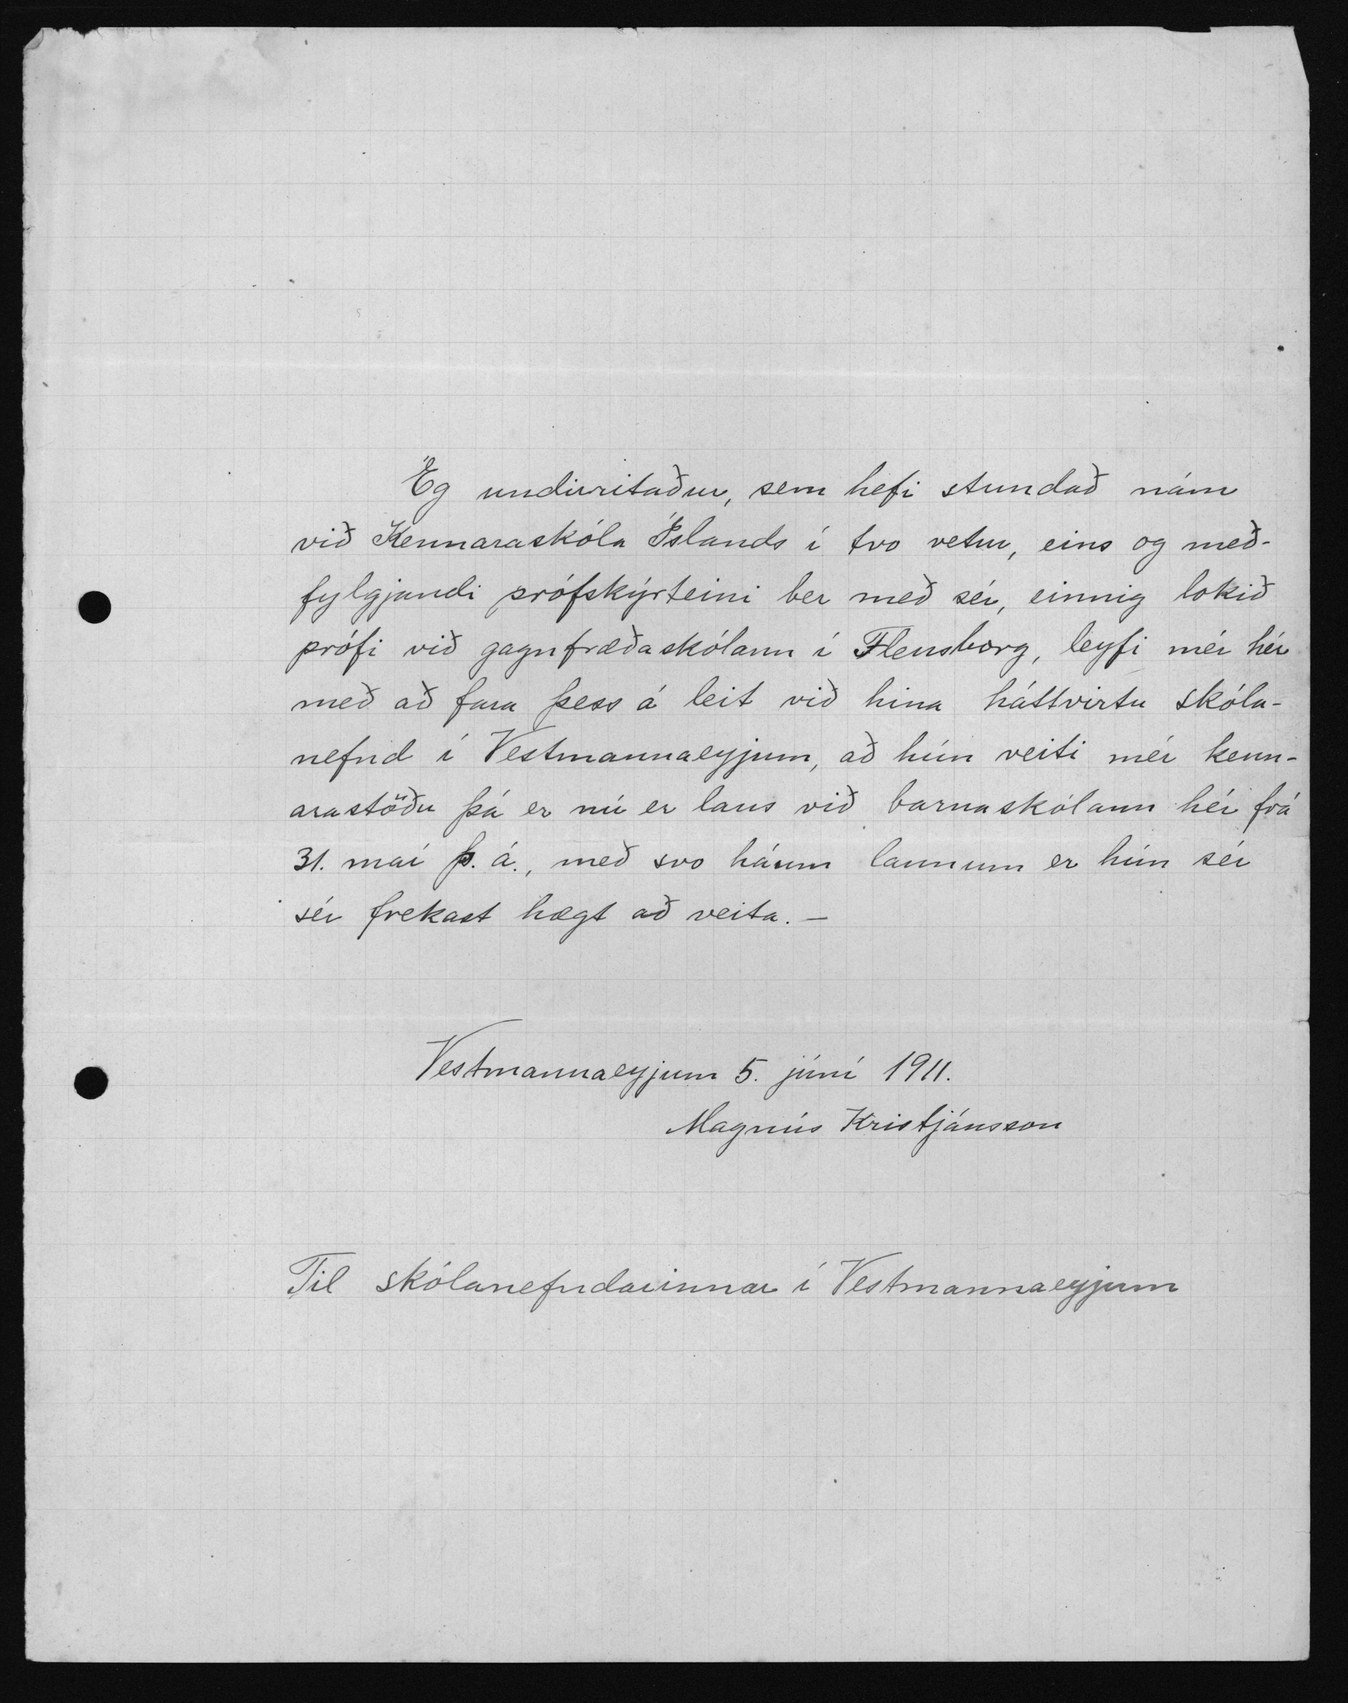 Ég undirritaður, sem hefi stundað nám
við Kennaraskóla Íslands í tvo vetur, eins og með-
fylgjandi prófskýrteini ber með sér, einnig lokið
prófi við gagnfræðaskólann í Flensborg, leyfi mér hér
með að fara þess á leit við hina háttvirtu skóla-
nefnd í Vestmannaeyjum, að hún veiti mér kenn-
arastöðu þá er nú er laus við barnaskólann hér frá
31. maí þ. á., með svo háum launum er hún sér
sér frekast hægt að veita. –
Vestmannaeyjum 5. júní 1911.
Magnús Kristjánsson
Til skólanefndarinnar í Vestmannaeyjum